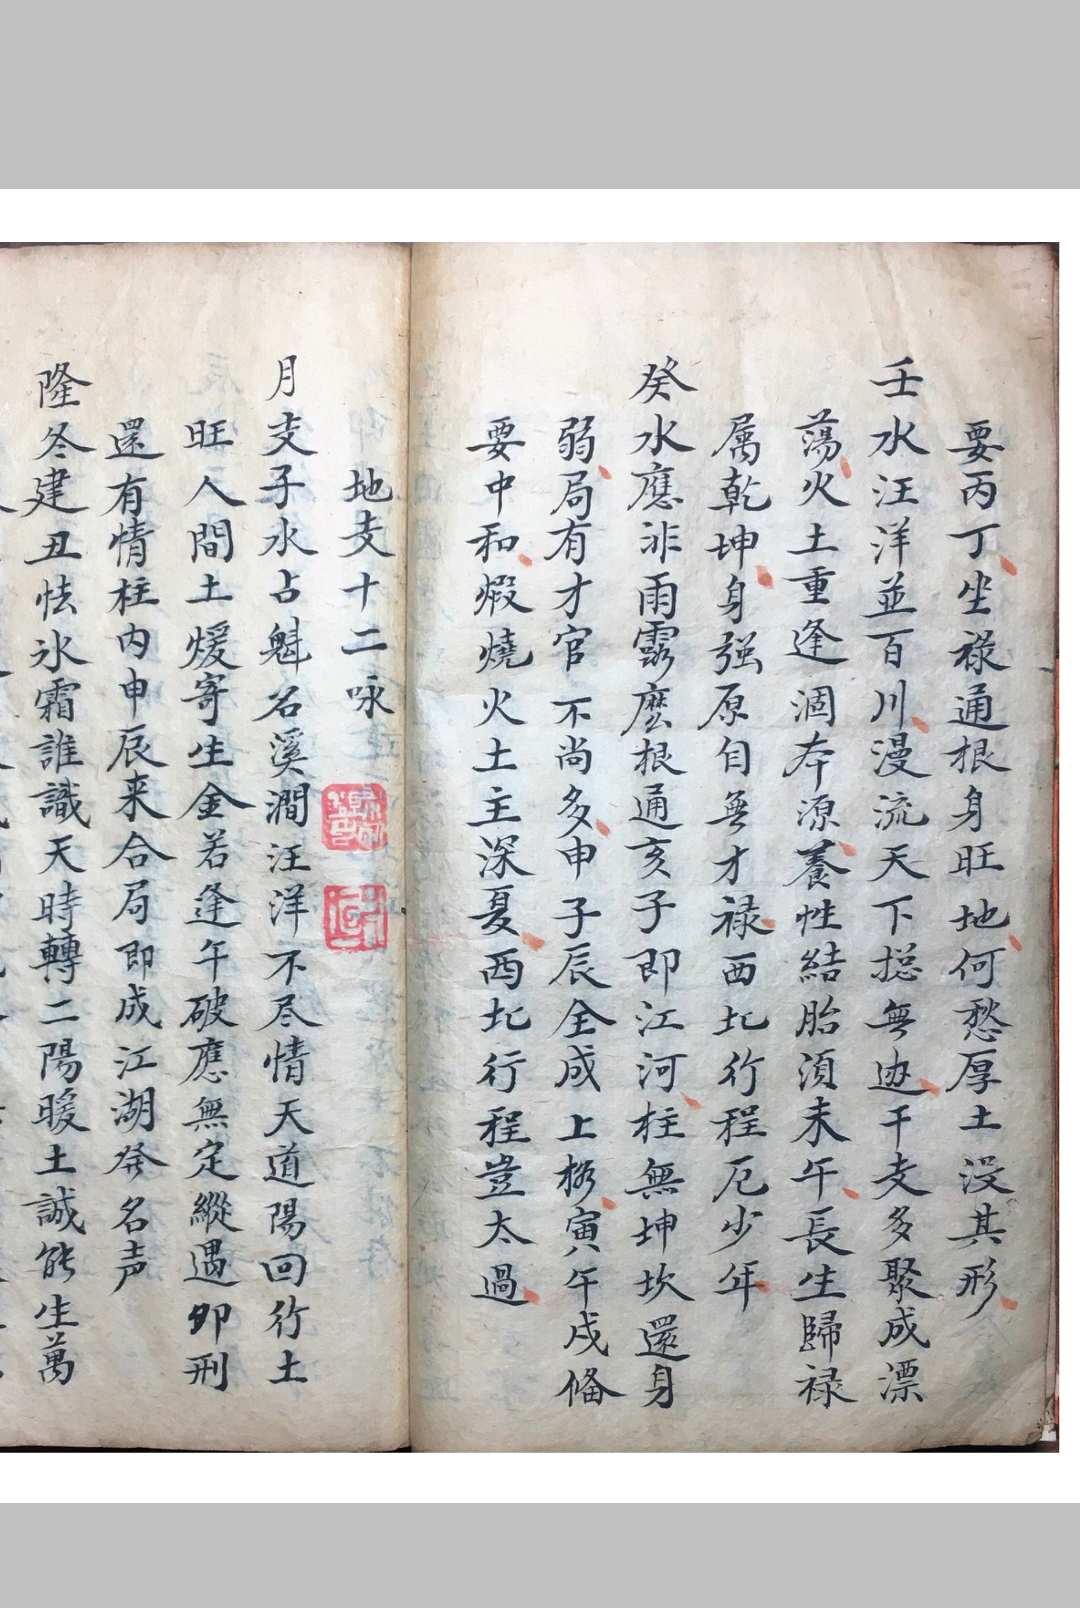 要丙丁坐禄通根身旺地何愁厚土没其形
壬水汪洋並百川漫流天下揔無边干支多聚成漂
蕩火土重逢涸本源養性結胎須未午長生歸禄
属乾坤身强原自無才禄西北行程厄少年
癸水應非雨露麽根通亥子即江河柱無坤坎還身
弱局有才官不尚多申子辰全成上格寅午戌俻
要中和煆燒火土主深夏西北行程豈太過
地支十二咏
月支子水占魁名溪澗汪洋不尽情天道陽回行土
旺人間土煖寄生金若逢午破應無定縱遇卯刑
還有情柱内申辰来合局即成江湖發名声
隆冬建丑怯氷霜誰識天時轉二陽暖土誠能生萬